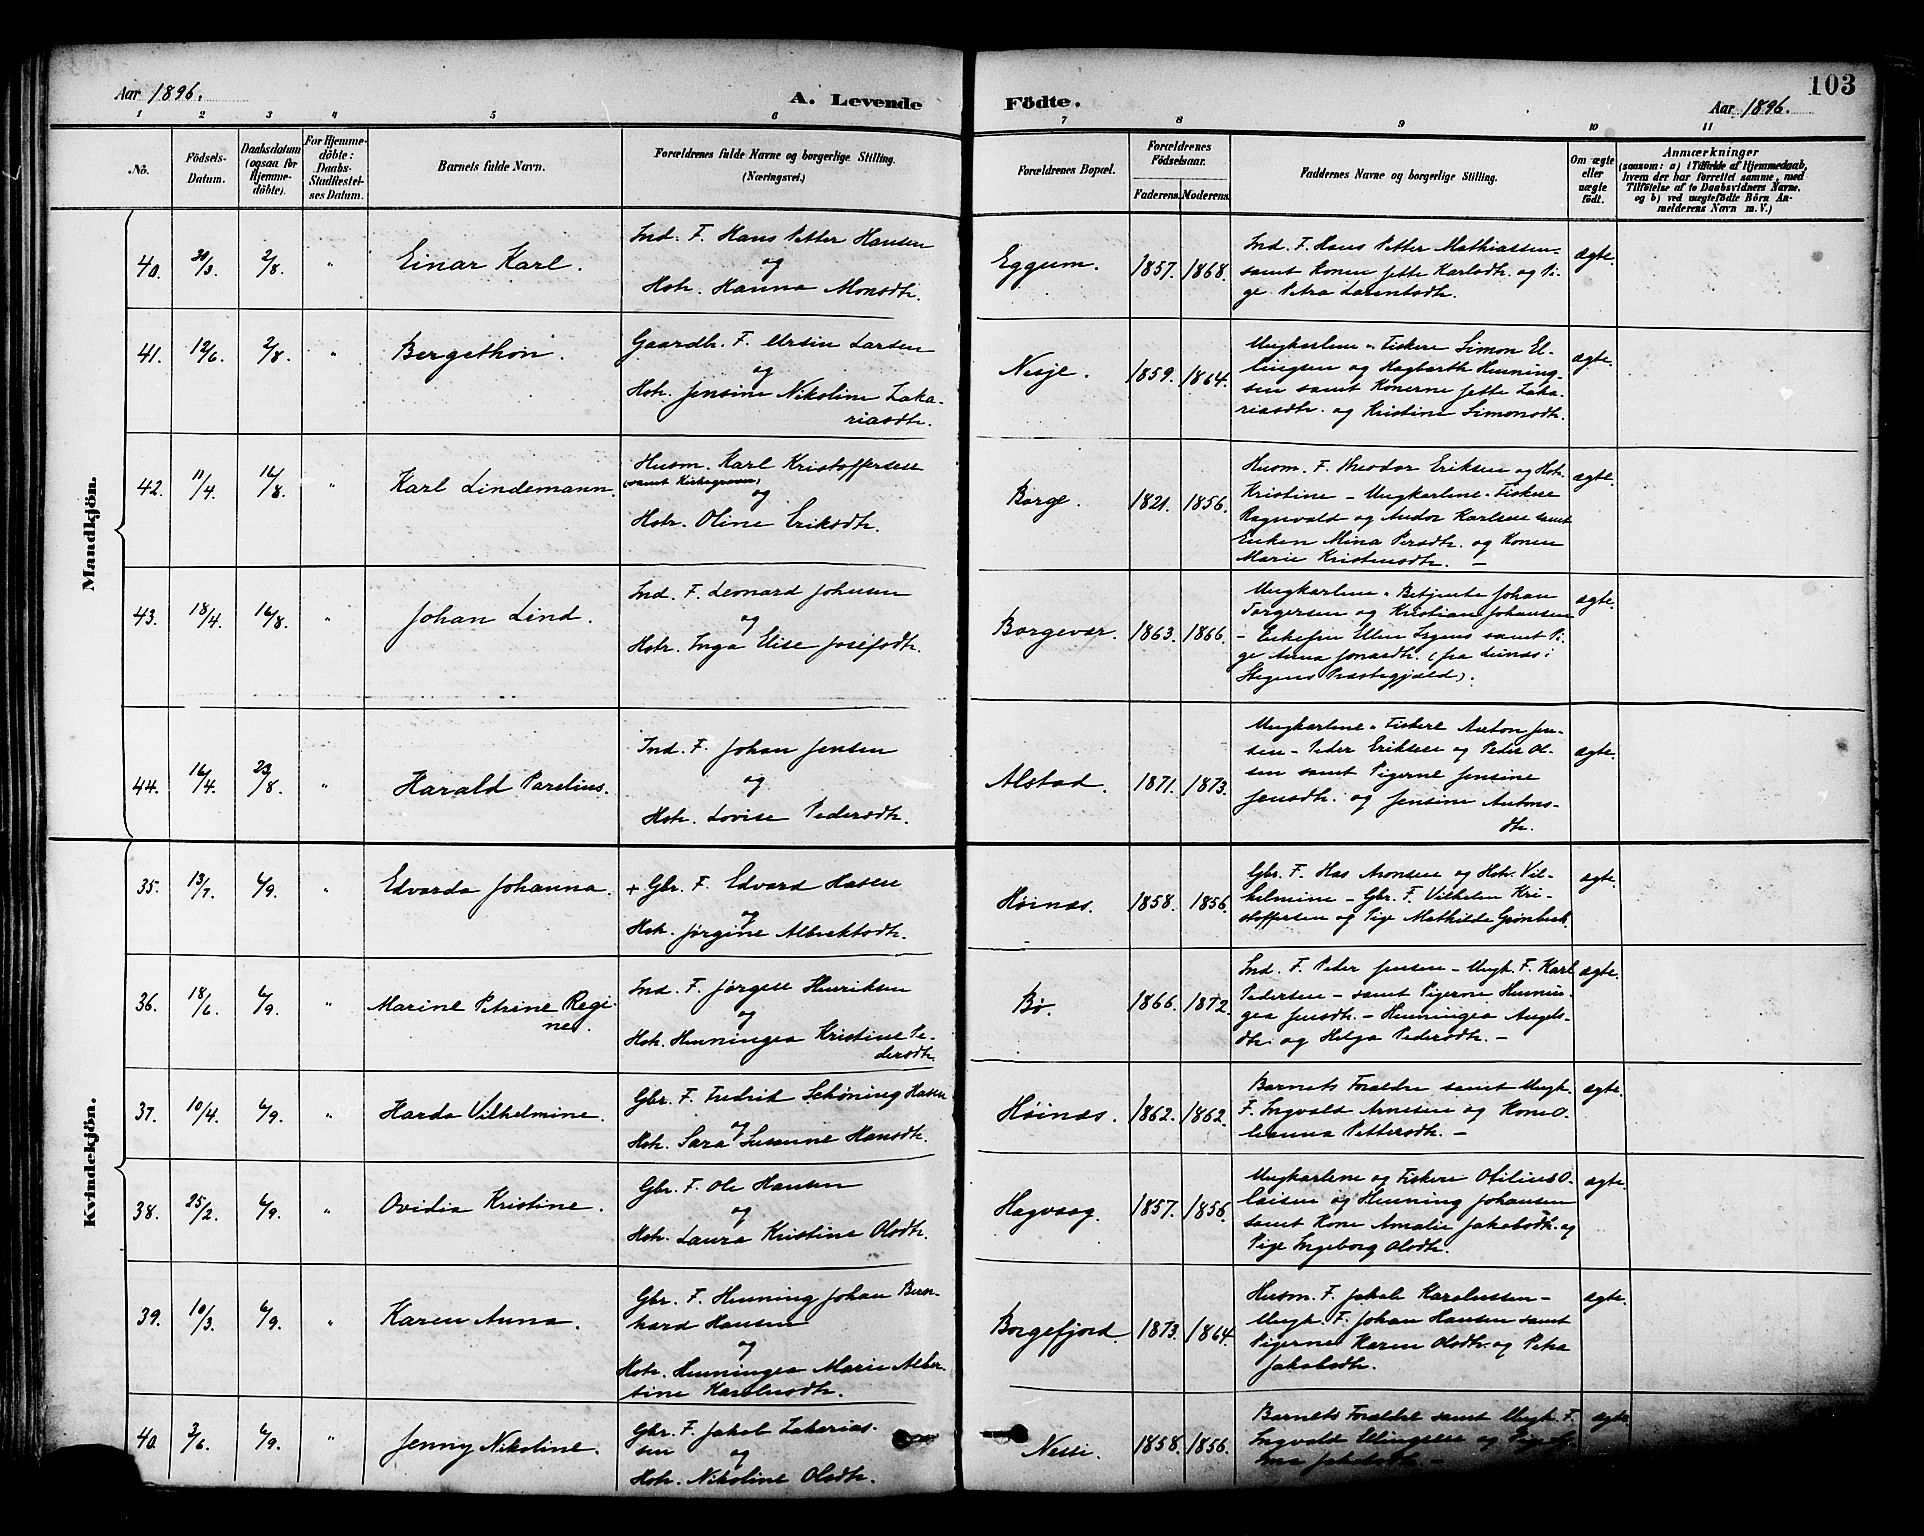 Aar 1896.
A. Levende Födte.
Aar 1896.
103
1 2 3 4 5 6 7 8 9 10 11
No.
Födsels-
Datum.
Daabsdatum
(ogsaa for
Hjemme-
döbte).
For Hjemme-
döbte:
Daabs-
Stadfæstel-
ses Datum.
Barnets fulde Navn.
Forældrenes fulde Navne og borgerlige Stilling.
(Næringsvei.)
Forældrenes Bopæl.
Forældrenes
Födselsaar.
Faderens. Moderens.
Faddernes Navne og borgerlige Stilling.
Om ægte
eller
uægte
födt.
Anmærkninger
(saasom: a) i Tilfælde af Hjemmedaab,
hvem der har forrettet samme, med
Tilföielse af to Daabsvidners Navne.
og b) ved uægtefödte Börn An-
melderens Navn m. V.)
Mandkjön.
40. 30/3 2/8. " Einar Karl.
Ind. F. Hans Petter Hansen
og
Hstr. Hanna Monsdtr.
Eggum. 1857. 1868.
Ind. F. Hans Petter Mathiassen-
samt Konen Jette Karlsdtr. og Pi-
ge Petra Larentsdtr.
ægte.
41. 12/6. 2/8. " Bergethon.
Gaardb. F. Ursin Larsen
og
Hstr. Jensine Nikoline Zaka-
riasdtr.
Nesje. 1859. 1864.
Ungkarlene - Fiskere Simon El-
lingsen og Hagbarth Henning-
sen samt Konerne Jette Zaka-
riasdtr. og Kristine Simonsdtr.
ægte.
42. 11/4. 16/8. " Karl Lindemann.
Husm. Karl Kristoffersen
(samt Kirkegraver)
og
Hstr. Oline Eriksdtr.
Borge. 1821. 1856.
Husm. F. Theodor Eriksen og Hstr.
Kristine - Ungkarlene - Fiskere
Ragnvald og Andor Karlsen samt
Enken Mina Persdtr. og Konen
Marie Kristensdtr. -
ægte.
43. 18/4. 16/8. " Johan Lind.
Ind. F. Leonard Johnsen
og
Hstr. Inga Elise Josefsdtr.
Borgevær. 1863. 1866.
Ungkarlene - Betjente Johan
Torgersen og Kristian Johansen
- Enkefru Ellen Irgens samt Pi-
ge Anna Jonasdtr. (fra Lunas i
Stegens Præstegjæld).
ægte.
44. 16/4. 23/8. " Harald Parelius.
Ind. F. Johan Jensen
og
Hstr. Lovise Pedersdtr.
Alstad. 1871. 1873.
Ungkarlene - Fiskere Anton Jen-
sen - Peder Eriksen og Peder Ol-
sen samt Pigerne Jensine
Jensdtr. og Jensine Antons-
dtr.
ægte.
Kvindekjön.
35. 13/7. 6/9. " Edvarda Johanna.
+ Gbr. F. Edvard Hasen
og
Hstr. Jørgine Albrektsdtr.
Høinæs. 1858. 1856.
Gbr. F. Has Aronsen og Hstr. Vil-
helmine - Gbr. F. Vilhelm Kri-
stoffersen og Pige Mathilde Grønbeck.
ægte.
36. 18/6. 6/9. " Marine Petrine Regi-
ne.
Ind. F. Jørgen Henriksen
og
Hstr. Henningea Kristine Pe-
dersdtr.
Bø. 1866. 1872.
Ind. F. Peder Jensen - Ungk. F. Karl
Pedersen - samt Pigerne Hennin-
gea Jensdtr. - Henningea Angels-
dtr. og Helga Pedersdtr. -
ægte.
37. 10/4. 6/9. " Harda Vilhelmine.
Gbr. F. Fredrik Schøning Hasen
og
Hstr. Sara Susanne Hansdtr.
Høinæs. 1862. 1862.
Barnets Forældre samt Ungk.
F. Ingvald Arnesen og Kone O-
leanna Pettersdtr. -
ægte.
38. 25/2. 6/9. " Ovidia Kristine.
Gbr. F. Ole Hansen
og
Hstr. Laura Kristina Olsdtr.
Hagvaag. 1857. 1856.
Ungkarlene og Fiskere Otilius O-
laisen og Henning Johansen
samt Kone Amalie Jakobsdtr. og
Pige Ingeborg Olsdtr.
ægte.
39. 10/3. 6/9. " Karen Anna.
Gbr. F. Henning Johan Bern-
hard Hansen
og
Hstr. Henningea Marie Alber-
tine Karelusdtr.
Borgefjord. 1873. 1864.
Husm. F. Jakob Karelussen -
Ungk. F. Johan Hansen samt
Pigerne Karen Olsdtr. og Petra
Jakobsdtr.
ægte.
40. 3/6. 6/9. " Jenny Nikoline.
Gbr. F. Jakob Zakarias-
sen
og
Hstr. Nikoline Olsdtr.
Nesje. 1858. 1856.
Barnets Forældre samt Ungk. F.
Ingvald Ellingsen og Pige
Jakobsdtr. -
ægte.